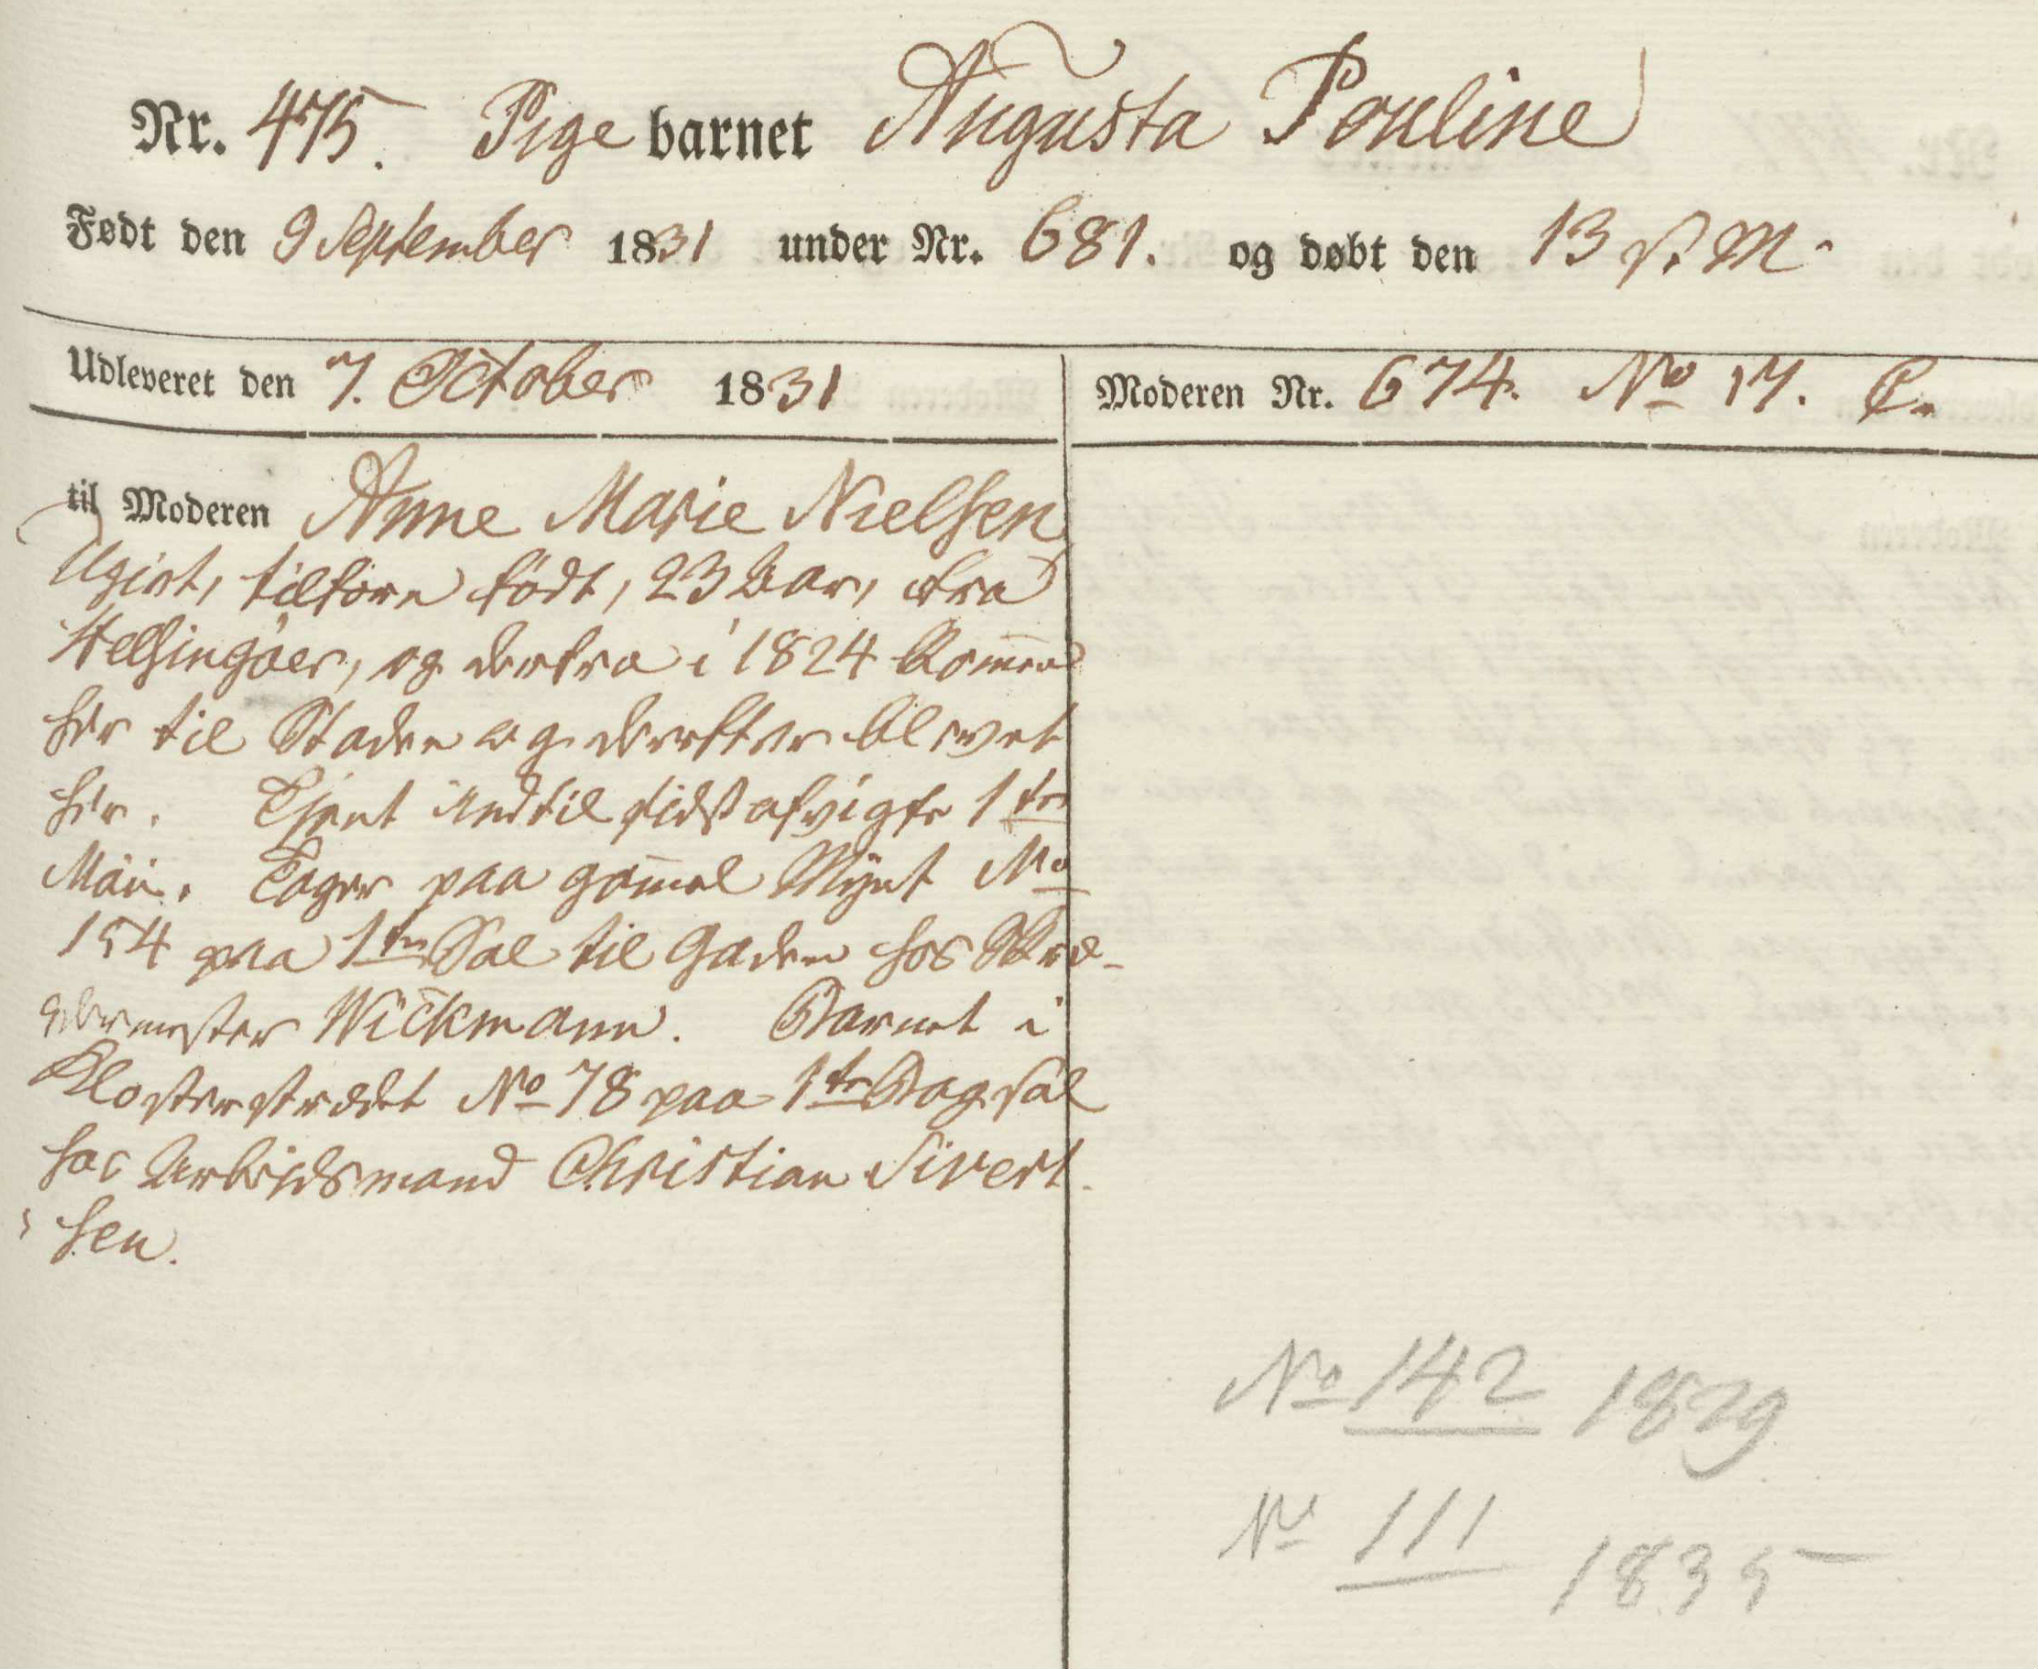 Nr. 475. Pige barnet Augusta Pouline
Født den 9 September 1831 under Nr. 681. og døbt den 13 s. M.
Udleveret den 7. October 1831
Moderen Nr. 674. No 17. C.
til Moderen Anne Marie Nielsen
Ugivt, tilforn födt, 23 Aar, fra
Helsingöer, og derfra i 1824 kommen
her til Staden og derefter blevet
her. Tjent indtil sidstafvigte 1te
Mäii. Loger paa gammel Mÿnt No
154 paa 1te Sal til Gaden hos Skræ-
dermester Wickmann. Barnet i
Klosterstrædet No 78 paa 1te Bagsal
hos Arbeidsmand Christian Sivert-
sen.
No 142 1829
No 111 1835